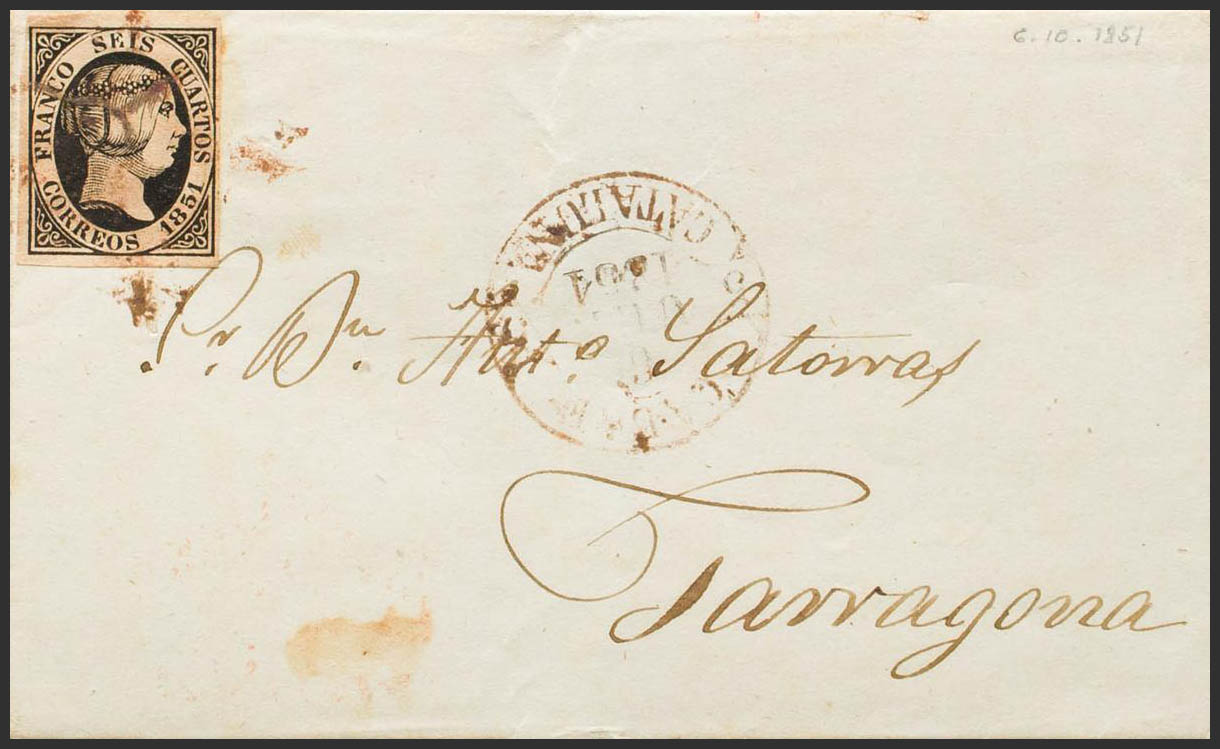 6.10.1851
FRANCO SEIS CUARTOS
CORREOS 1851
CATALUÑA
1851
Sr. Dn. Anto. Satorras
Tarragona